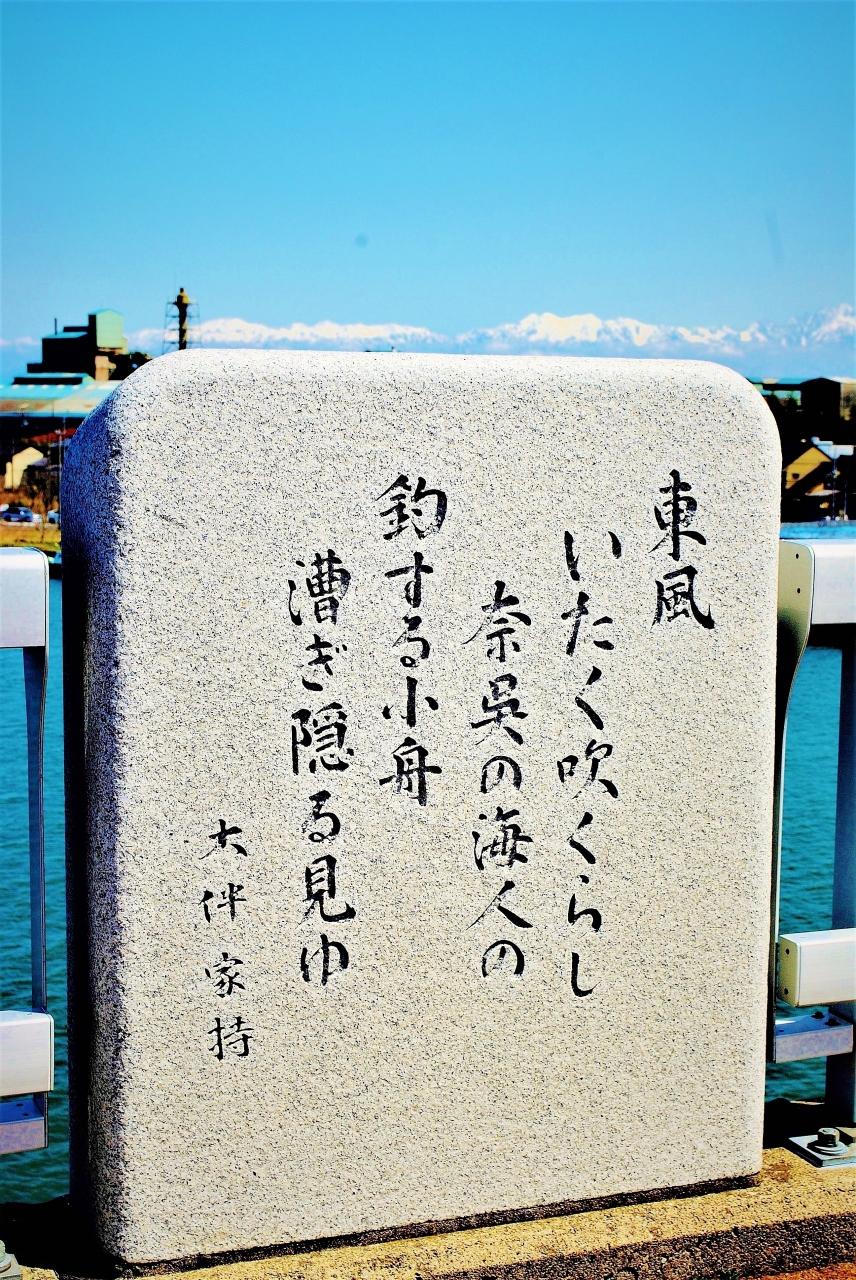 東風
いたく吹くらし
奈呉の海人の
釣する小舟
漕ぎ隠る見ゆ
大伴家持